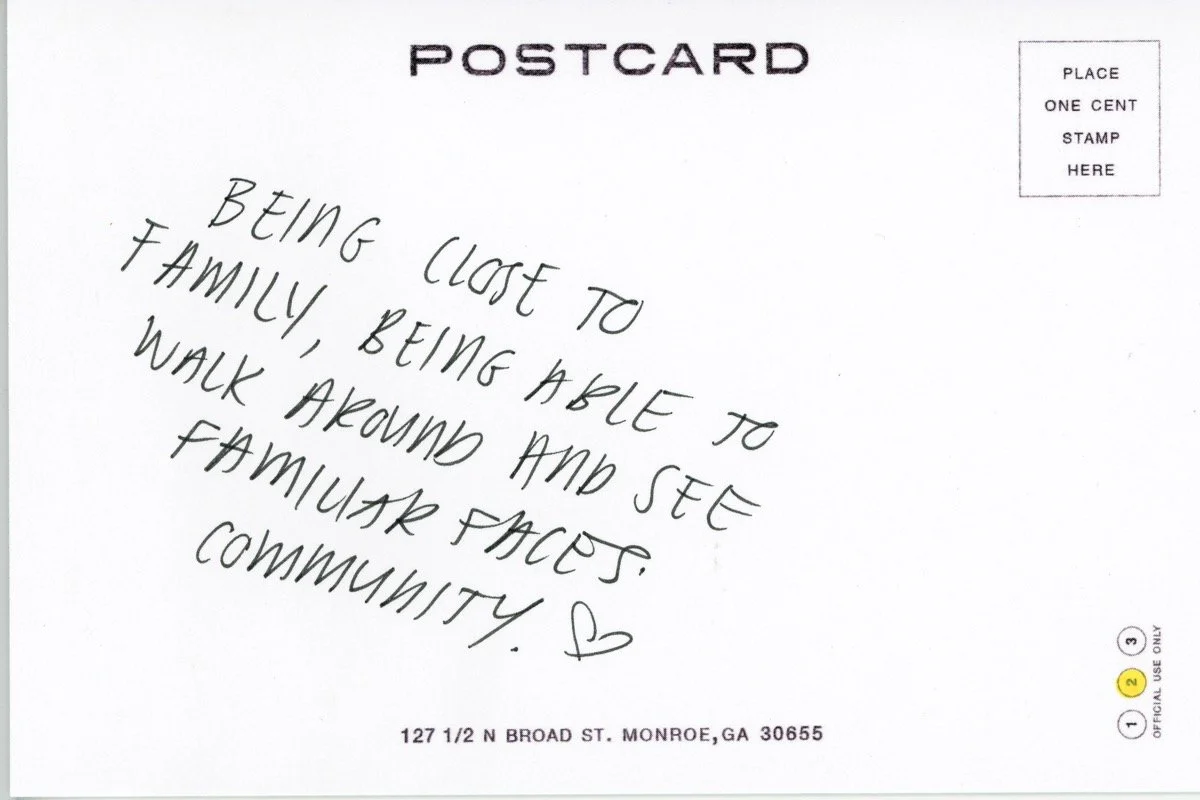 POSTCARD
PLACE
ONE CENT
STAMP
HERE
BEING CLOSE TO
FAMILY, BEING ABLE TO
WALK AROUND AND SEE
FAMILIAR FACES.
COMMUNITY. ♡
127 1/2 N BROAD ST. MONROE,GA 30655
1 2 3
OFFICIAL USE ONLY